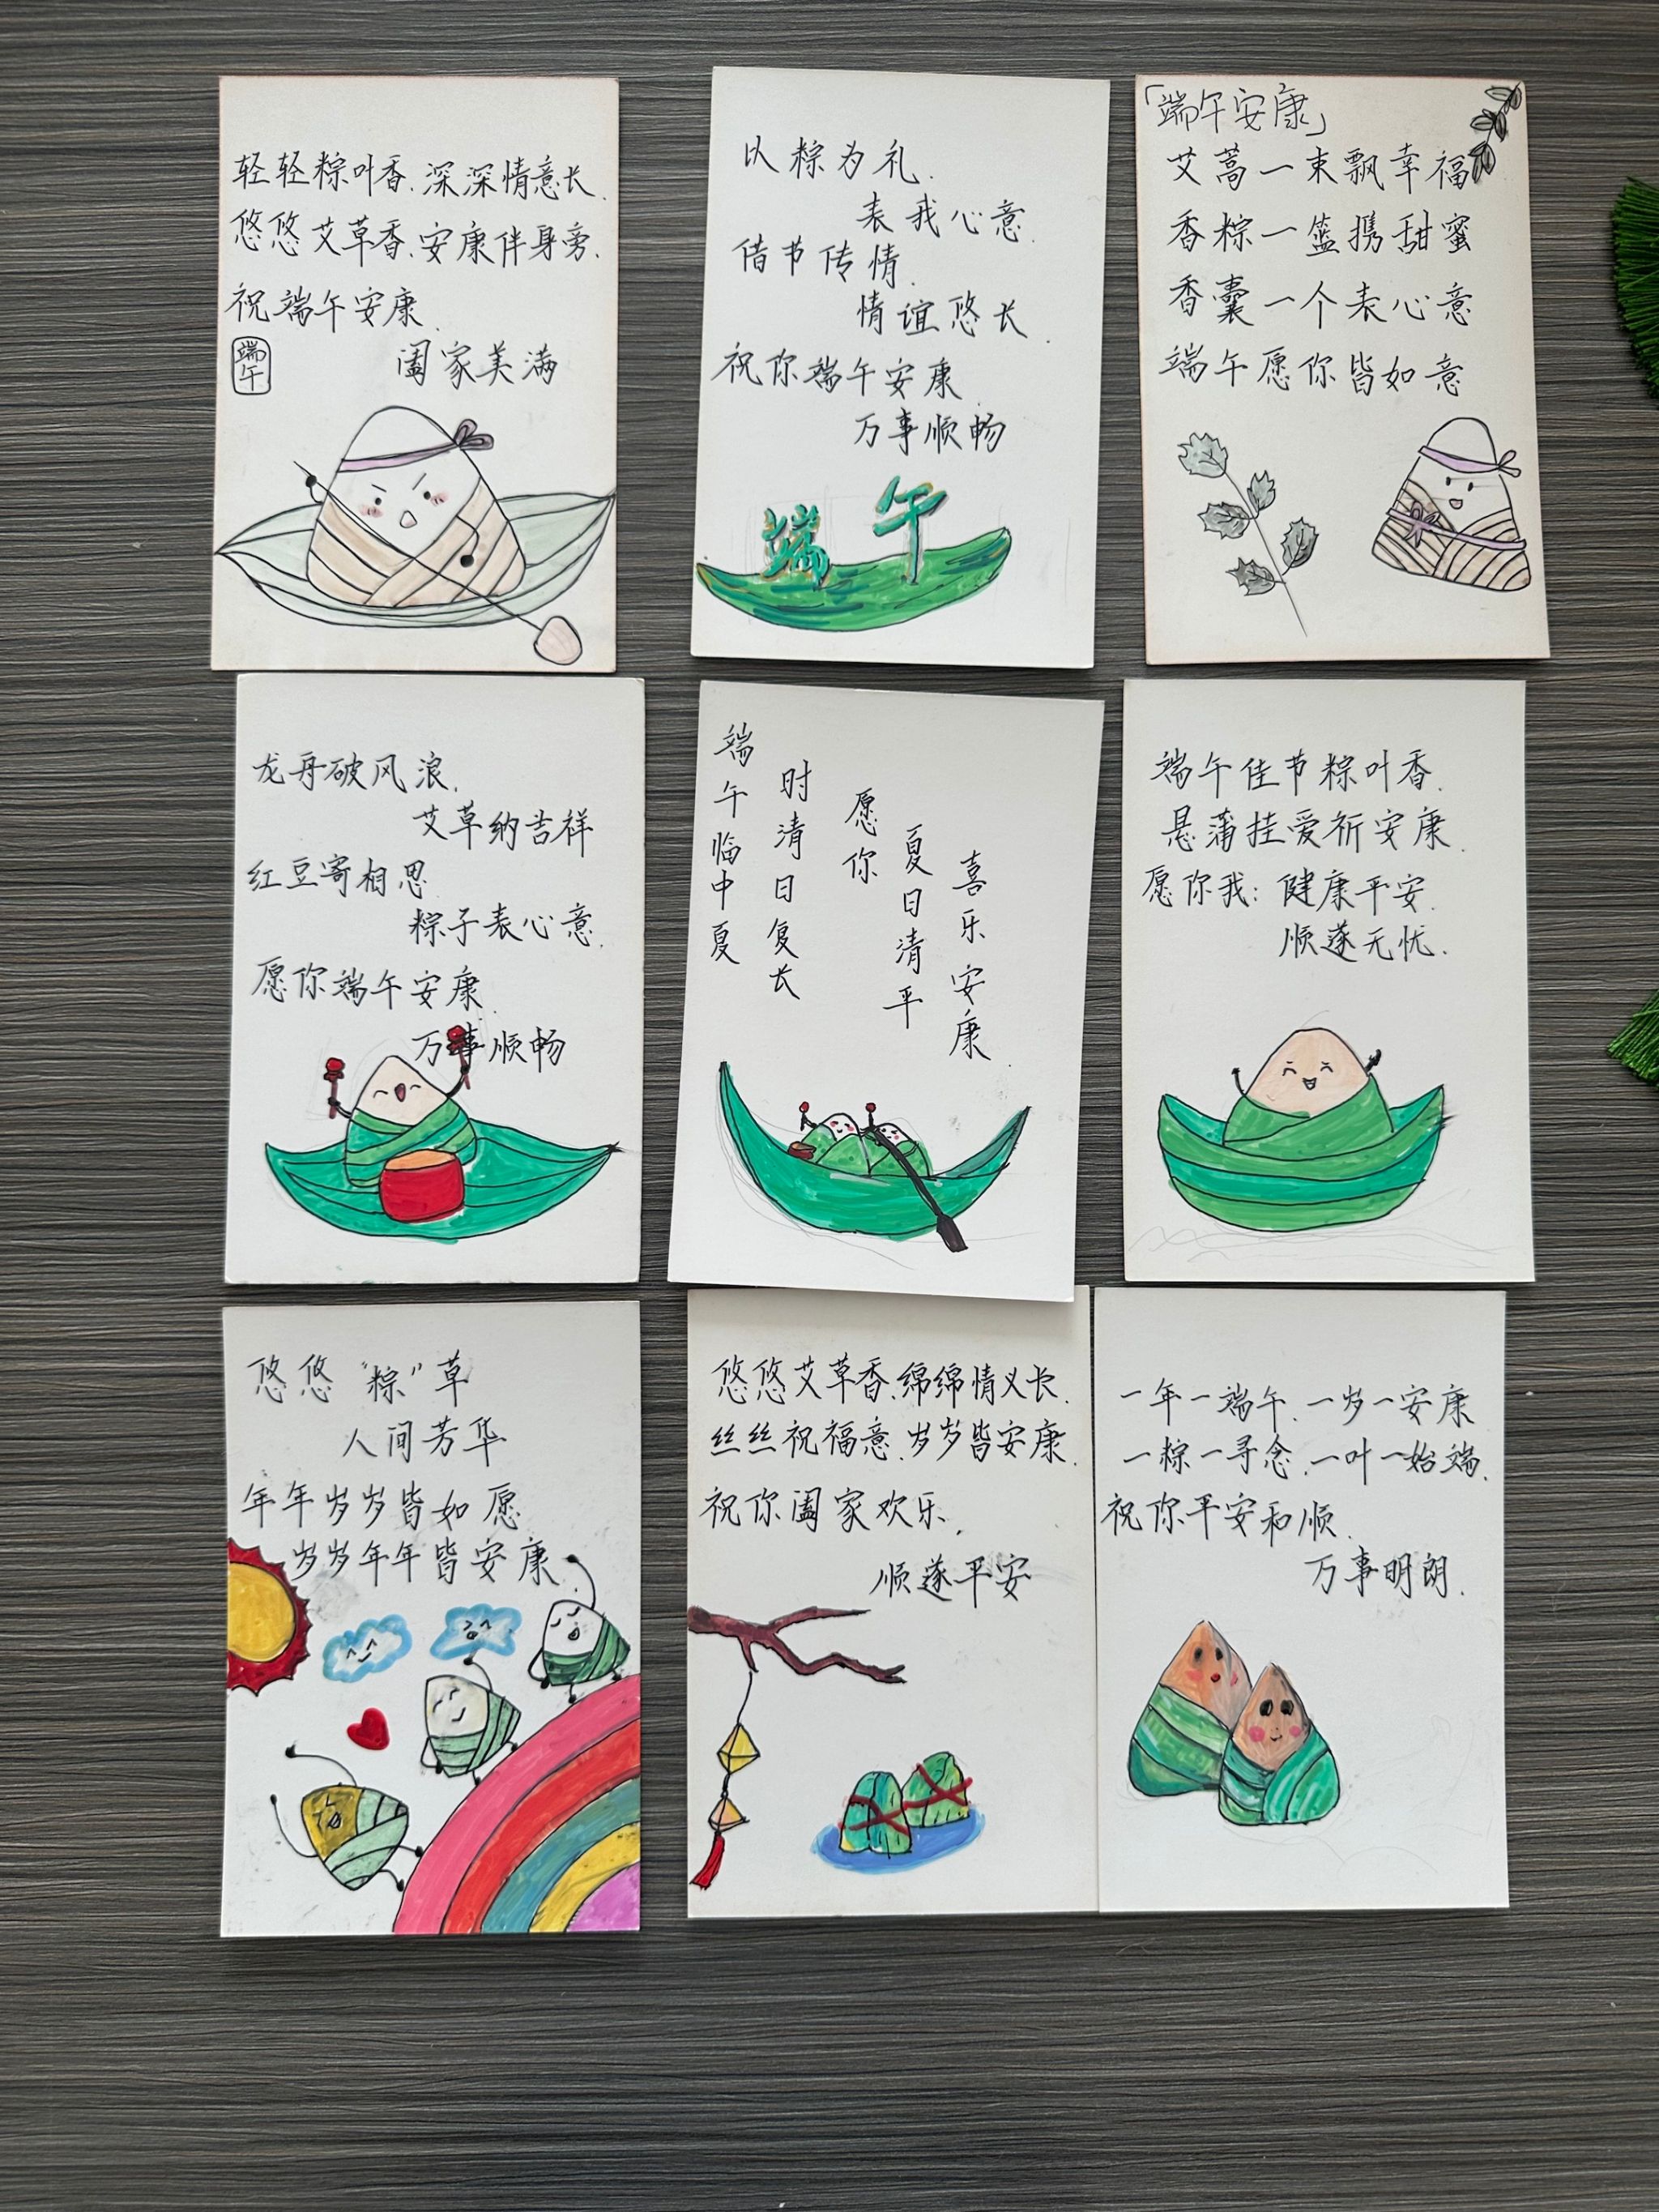 轻轻粽叶香.深深情意长.
悠悠艾草香.安康伴身旁.
祝端午安康.
阖家美满
端午
以粽为礼.
表我心意.
借节传情.
情谊悠长.
祝你端午安康.
万事顺畅
端午
「端午安康」
艾蒿一束飘幸福
香粽一篮携甜蜜
香囊一个表心意
端午愿你皆如意
龙舟破风浪.
艾草纳吉祥
红豆寄相思.
粽子表心意.
愿你端午安康.
万事顺畅
端午临中夏
时清日复长
愿你
夏日清平
喜乐安康.
端午佳节粽叶香.
悬蒲挂爱祈安康.
愿你我:健康平安.
顺遂无忧.
悠悠“粽”草
人间芳华
年年岁岁皆如愿
岁岁年年皆安康.
悠悠艾草香.绵绵情义长.
丝丝祝福意.岁岁皆安康.
祝你阖家欢乐.
顺遂平安
一年一端午.一岁一安康
一粽一寻念.一叶一始端.
祝你平安和顺.
万事明朗.